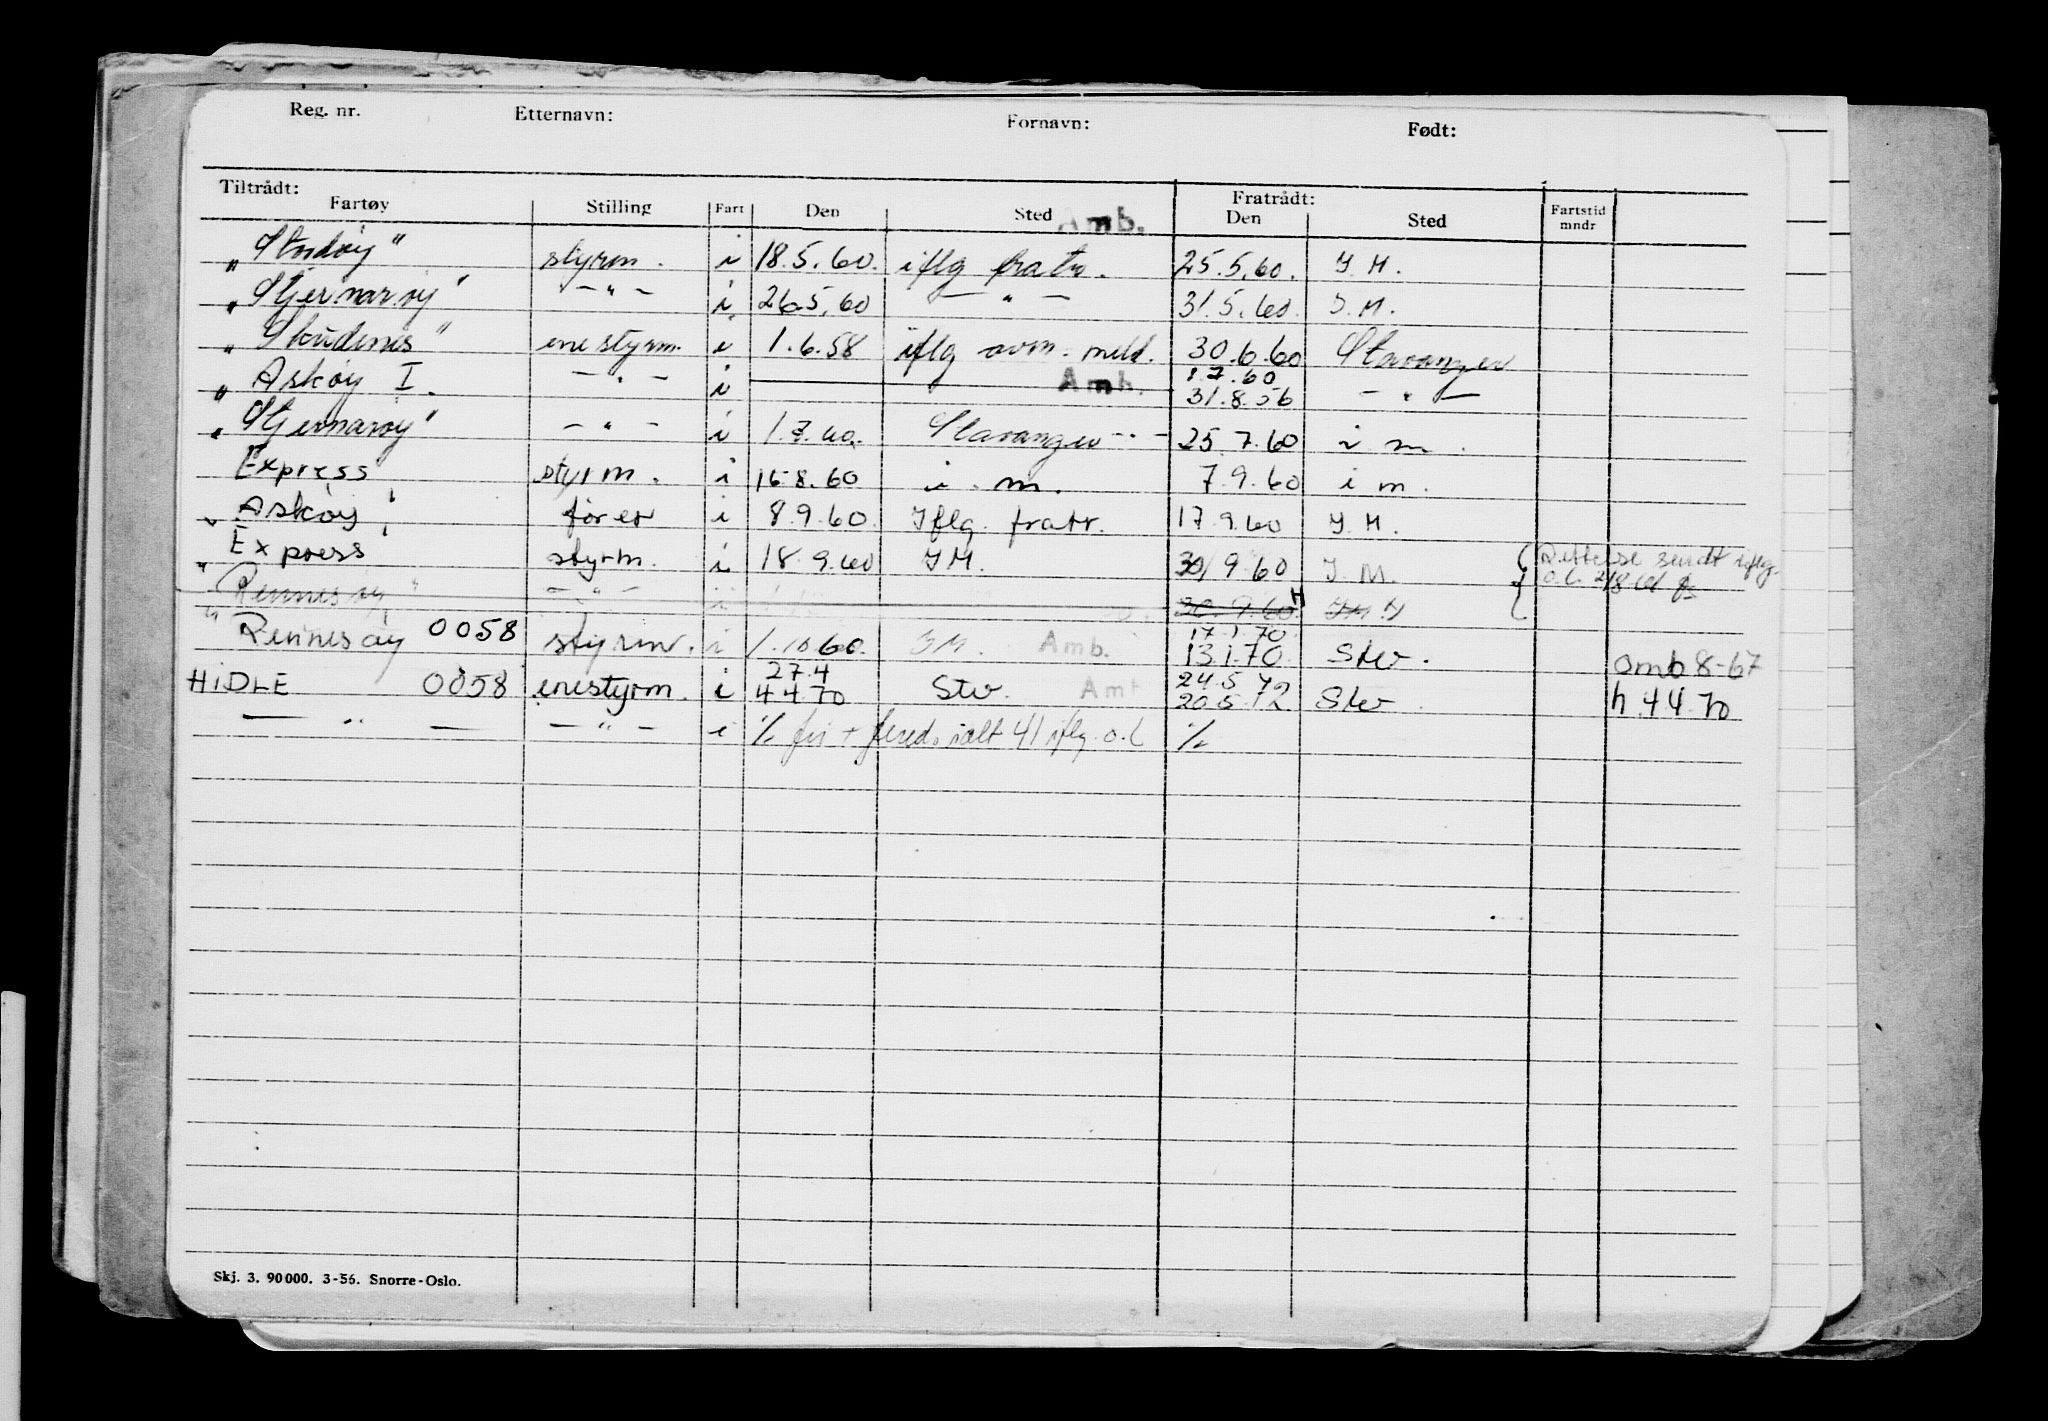 Reg. nr. Etternavn: Fornavn: Født:
Tiltrådt: Fratrådt:
Fartøy Stilling Fart Den Sted Amb. Den Sted Fartstid mndr
" " styrm. i 18.5.60. iflg fratr. 25.5.60. I.M.
" Stjernarøy " — " — i. 26.5.60 — " — 31.5.60. I.M.
" Skudenes " enestyrm. i 1.6.58 iflg avm. meld. 30.6.60 Stavanger
" Askøy I. — " — i Amb. 1.7.60 31.8.56 — " —
" Stjernarøy " — " — i 1.7.60. Stavanger - " - 25.7.60 i m.
Express styrm. i 15.8.60 i. m. 7.9.60 i m.
" Askøy " fører i 8.9.60. Iflg. fratr. 17.9.60 I.M.
" Express " styrm. i 18.9.60 I M. 30/9.60 I.M. Rettelse sendt iflg. o.l. 2/8-61
" Rennesøy " — " — i 30.9.60 H
" Rennesøy 0058 styrm. i 1.10.60. I M. Amb. 17.1.70 13.1.70. Stv. omb 8-67
HiDLE 0058 enestyrm. i 27.4 4.4.70 Stv. Amb 24.5.72 20.5.72 Stv h.4.4.70
— " — — " — i % fri + ialt 41 iflg. o.l %
Skj. 3. 90000. 3-56. Snorre-Oslo.